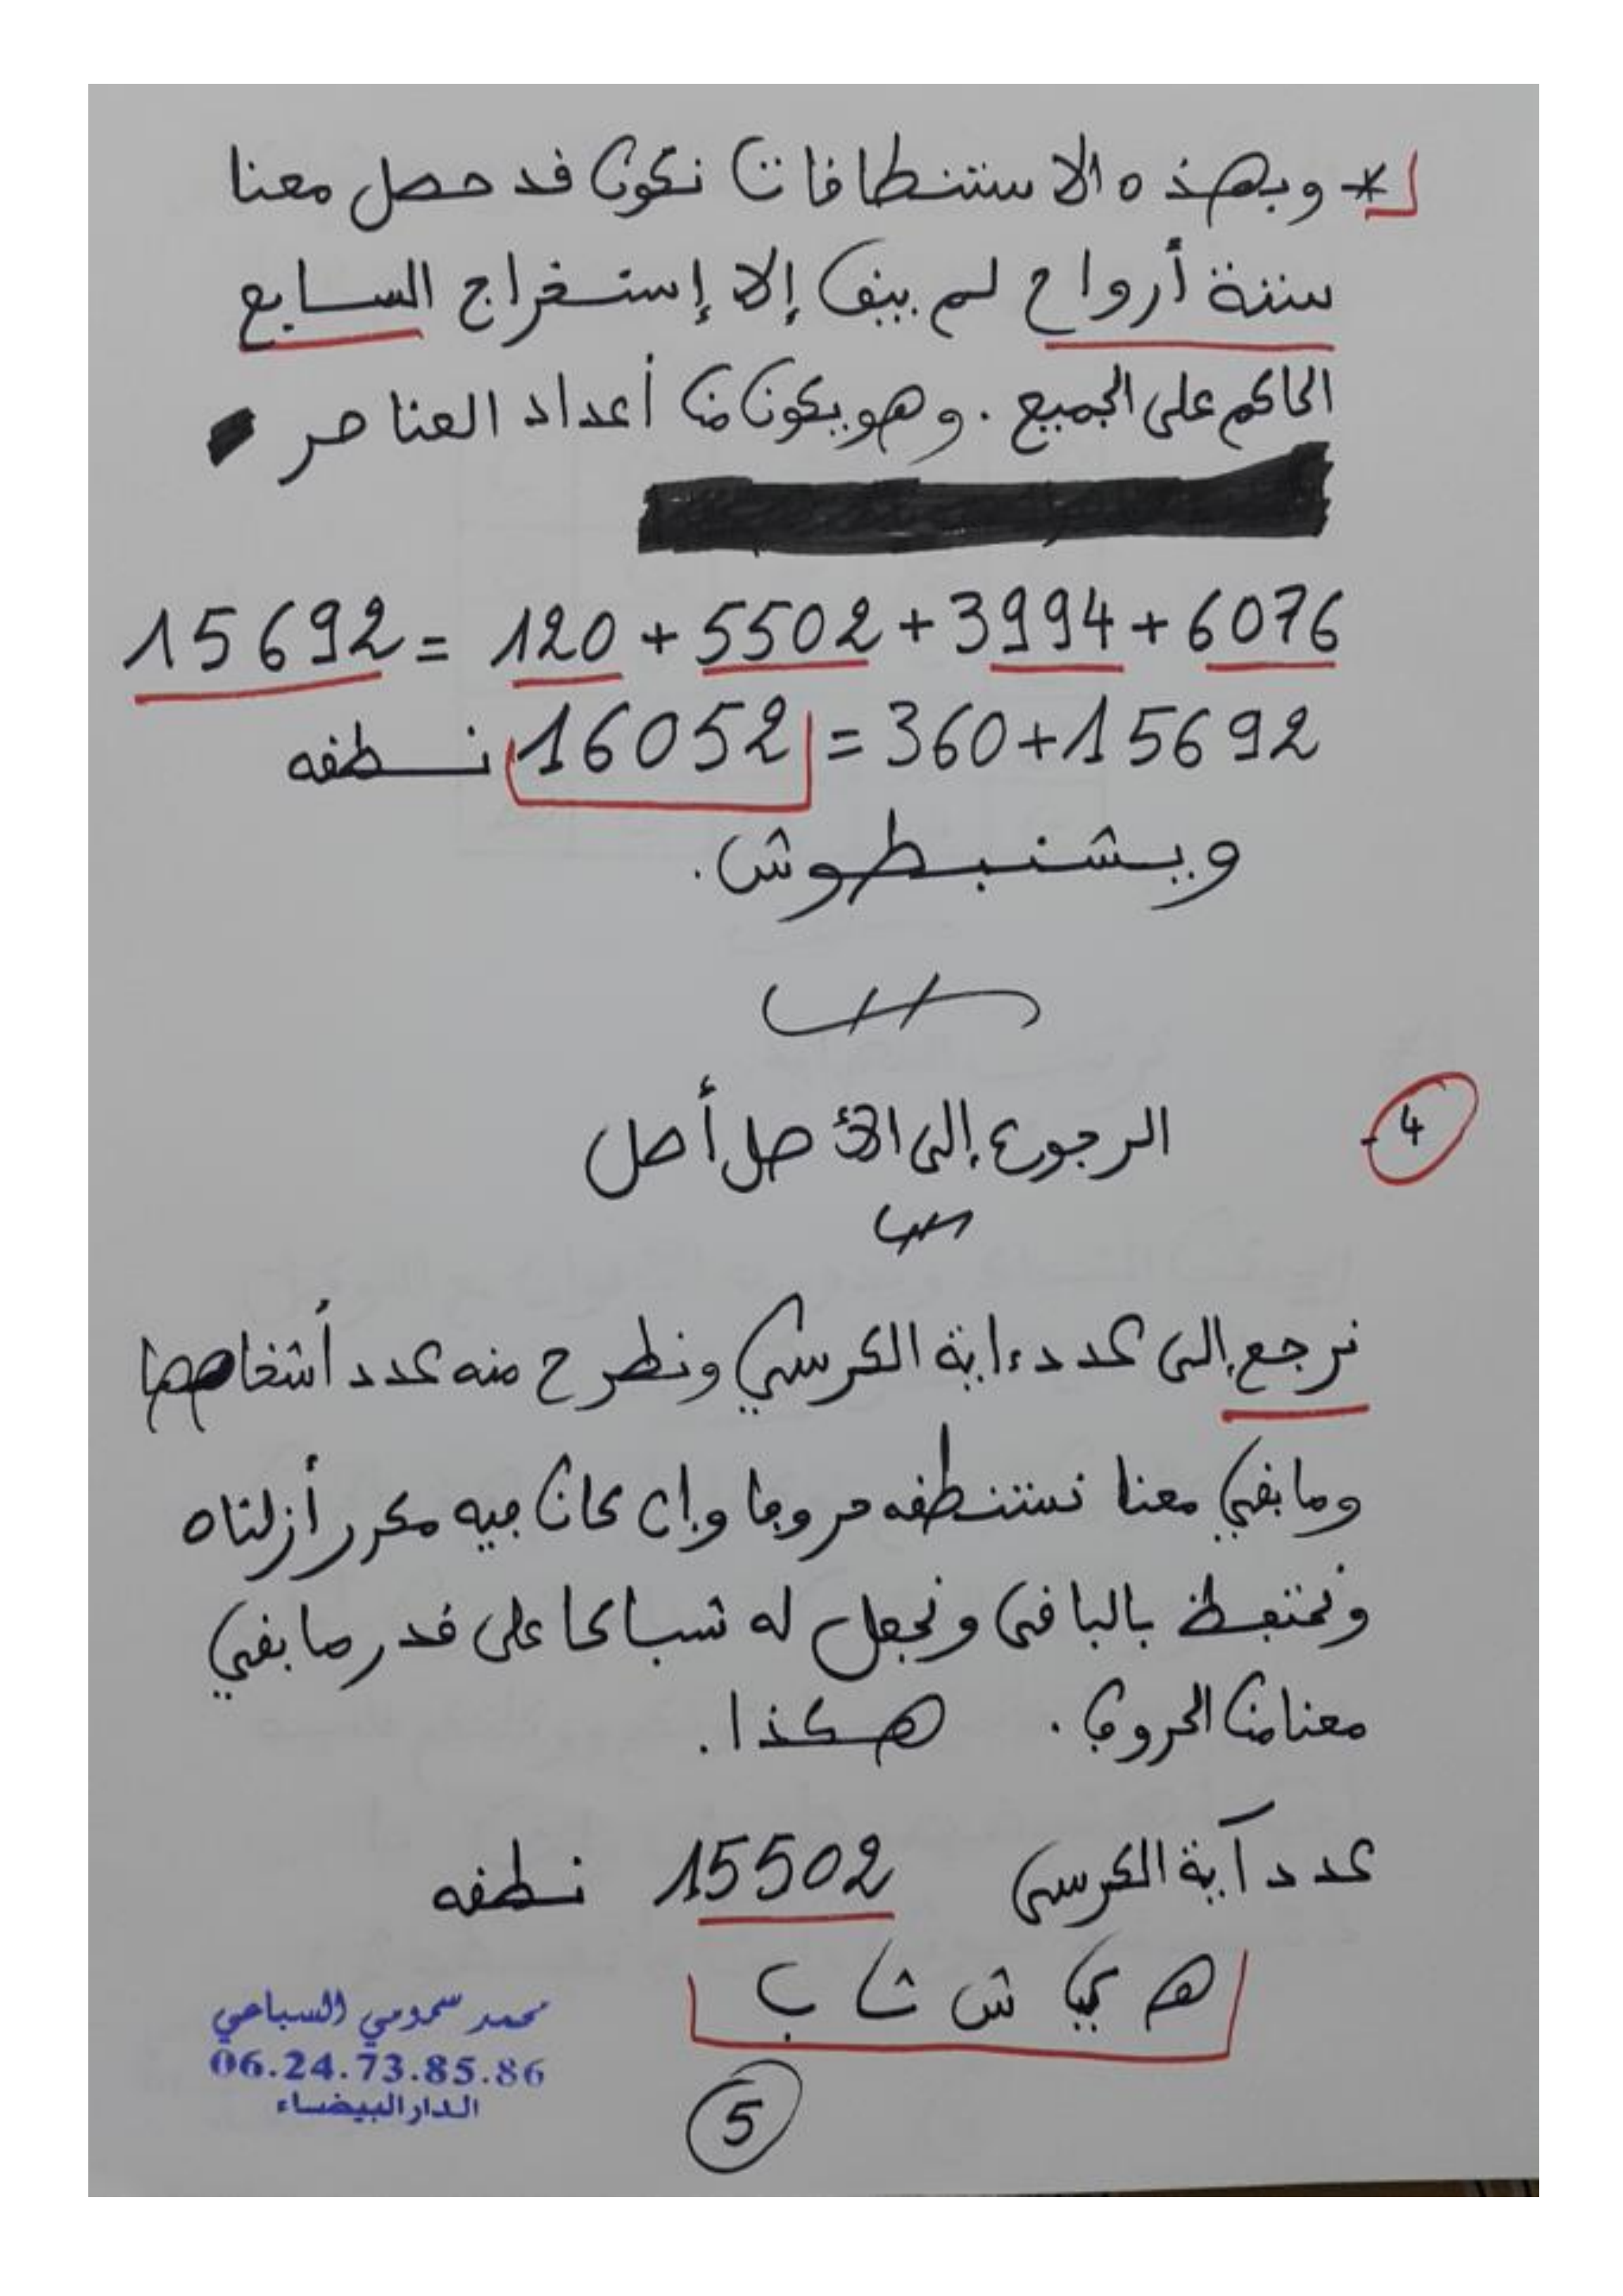 * وبهذه الاستنطاقات نكون قد حصل معنا
ستة أرواح لم يبق إلا إستخراج السابع
الحاكم على الجميع . وهو يكون من أعداد العناصر
15692 = 120 + 5502 + 3994 + 6076
نسطقه 16052 = 360 + 15692
ويشنبطوش .
4 - الرجوع إلى الأصل أصل
نرجع إلى عدد ءاية الكرسي ونطرح منه عدد أشخاصها
وما بقي معنا نستنطقه حروفا وإن كان فيه مكرر أزلناه
ونحتفظ بالباقي ونجعل له تسباعا على قدر ما بقي
معنا من الحروف . هكذا .
عدد آية الكرسي 15502 نسطقه
ه ي ش ث ب
محمد سمومي السباحي
06.24.73.85.86
الدار البيضاء
5